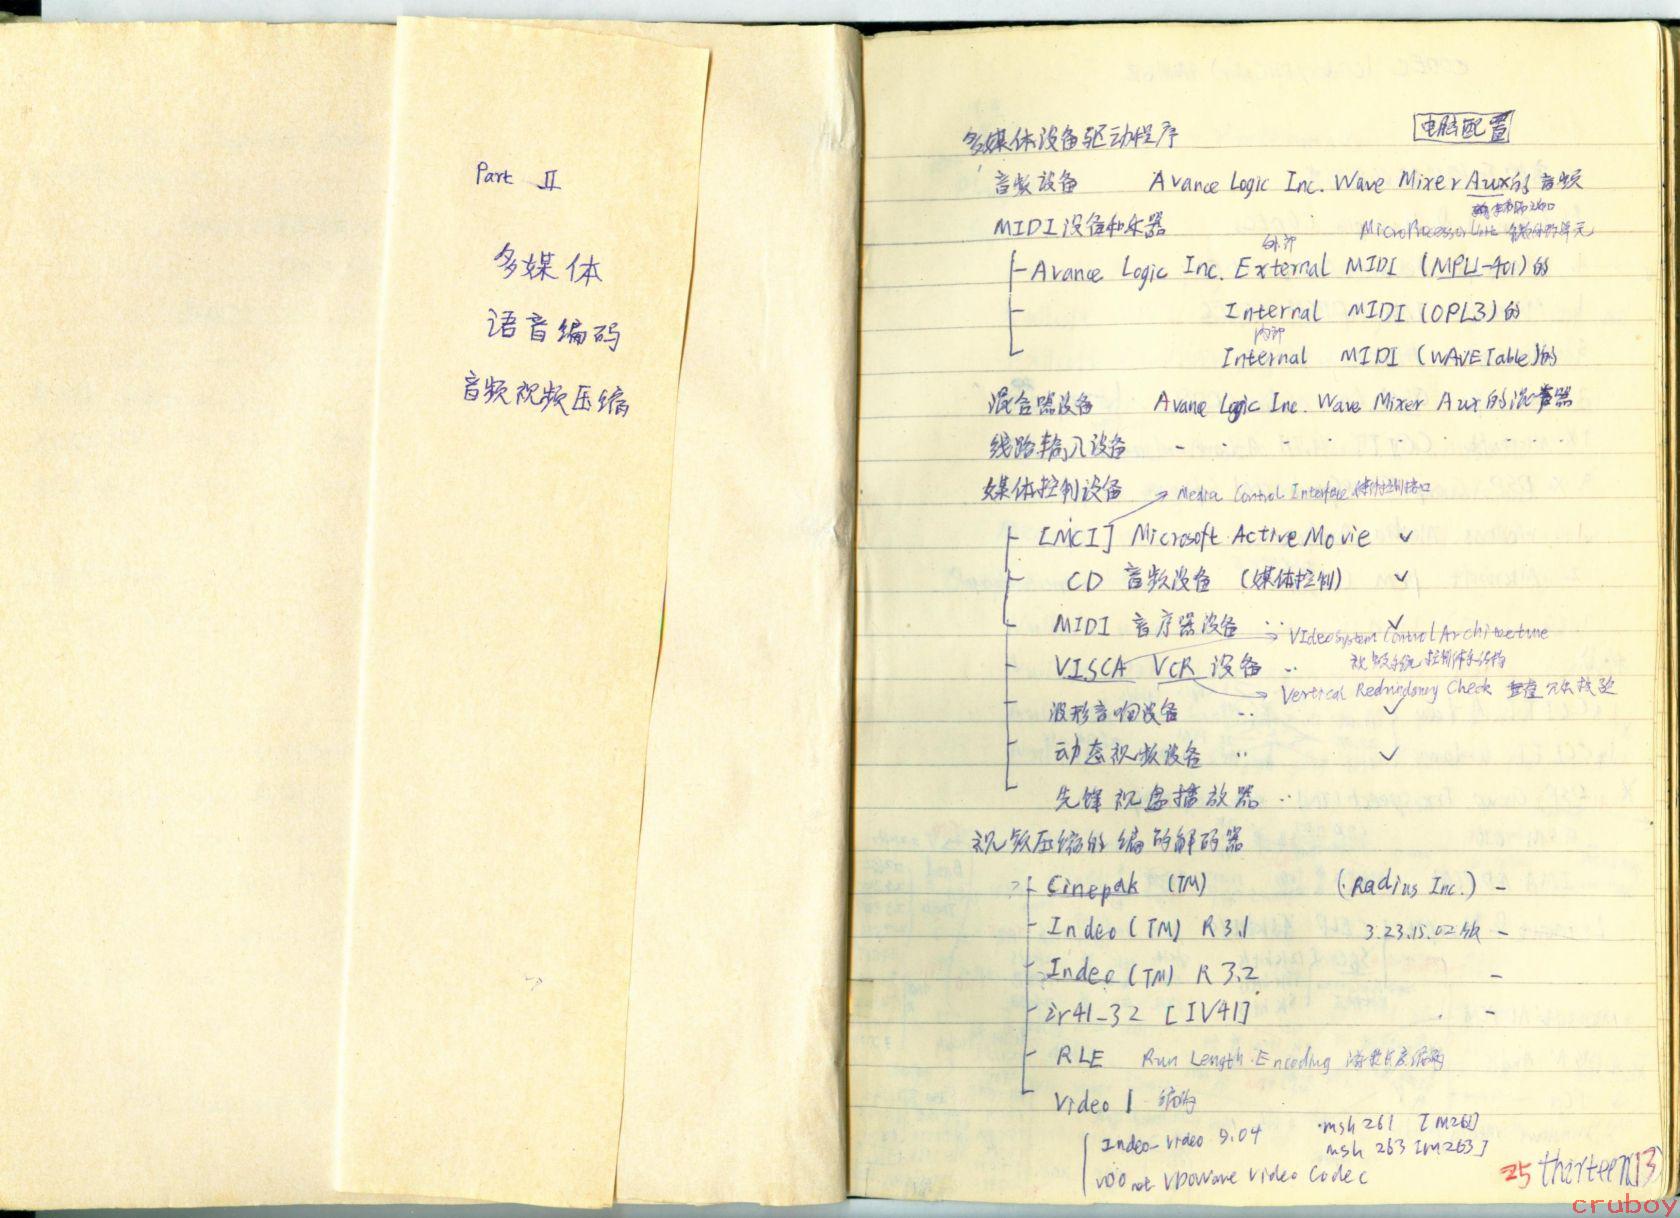 Part II
多媒体
语音编码
音频视频压缩
电脑配置
多媒体设备驱动程序
音频设备 Avance Logic Inc. Wave Mixer Aux的音频
MIDI设备和乐器 MicroProcessor Unit 单元
外部
Avance Logic Inc. External MIDI (MPU-401)的
Internal MIDI (OPL3)的
内部
Internal MIDI (WAVETable)的
混合器设备 Avance Logic Inc. Wave Mixer Aux的混音器
线路输入设备 -
媒体控制设备 → Media Control Interface 媒体控制接口
[MCI] Microsoft ActiveMovie ✓
CD 音频设备 (媒体控制) ✓
MIDI 音序器设备 ‥ ✓
→ VIdeo System Control Architecture
VISCA VCR 设备 ‥ 视频系统控制体系结构
→ Vertical Redundancy Check 垂直冗余校验
波形音响设备 ‥ ✓
动态视频设备 ‥ ✓
先锋视盘播放器 ‥
视频压缩的编码解码器
Cinepak (TM) (Radius Inc.) -
Indeo (TM) R3.1 3.23.15.02版 -
Indeo (TM) R3.2 -
Ir41-32 [IV41] -
RLE Run Length Encoding
Video 1 编码
Indeo-video 5.04 msh261 [M261]
msh263 [M263]
VDOnet VDOWave Video Codec
25 therteen(13)
cruboy